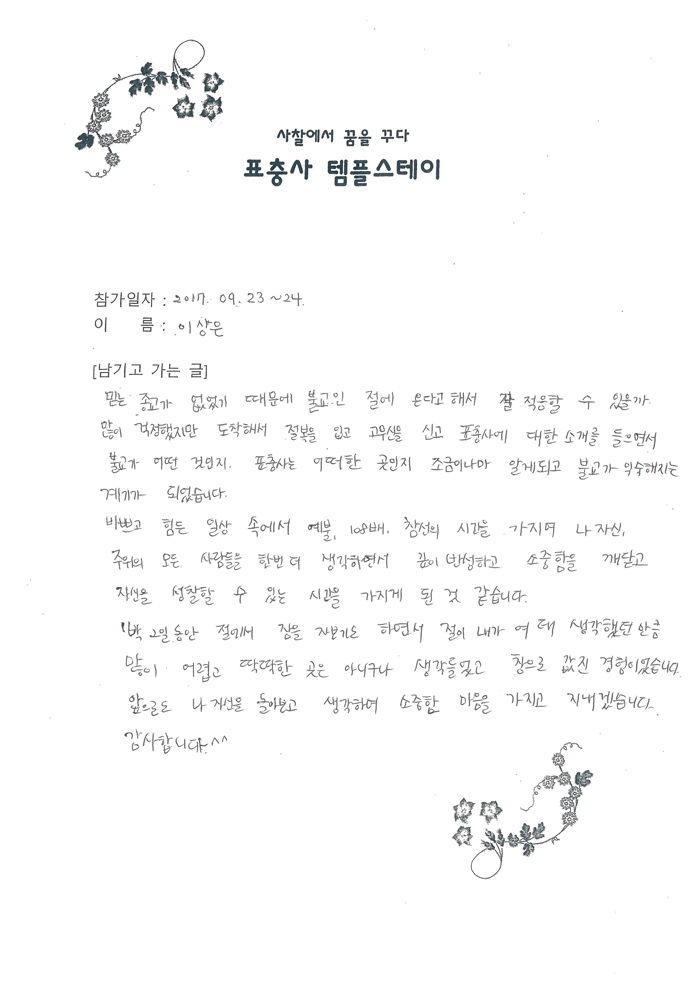 사찰에서 꿈을 꾸다
표충사 템플스테이
참가일자 : 2017. 09. 23 ~24.
이 름 : 이상은
[남기고 가는 글]
믿는 종교가 없었기 때문에 불교인 절에 온다고 해서 잘 적응할 수 있을까
많이 걱정했지만 도착해서 절복을 입고 고무신을 신고 표충사에 대한 소개를 들으면서
불교가 어떤 것인지. 표충사는 어떠한 곳인지 조금이나마 알게되고 불교가 익숙해지는
계기가 되었습니다.
바쁘고 힘든 일상 속에서 예불, 108배, 참선의 시간을 가지며 나 자신,
주위의 모든 사람들을 한번 더 생각하면서 깊이 반성하고 소중함을 깨닫고
자신을 성찰할 수 있는 시간을 가지게 된 것 같습니다.
1박 2일 동안 절에서 잠을 자보기도 하면서 절이 내가 여태 생각했던 만큼
많이 어렵고 딱딱한 곳은 아니구나 생각들었고 참으로 값진 경험이었습니다.
앞으로도 나 자신을 돌아보고 생각하며 소중한 마음을 가지고 지내겠습니다.
감사합니다.^^